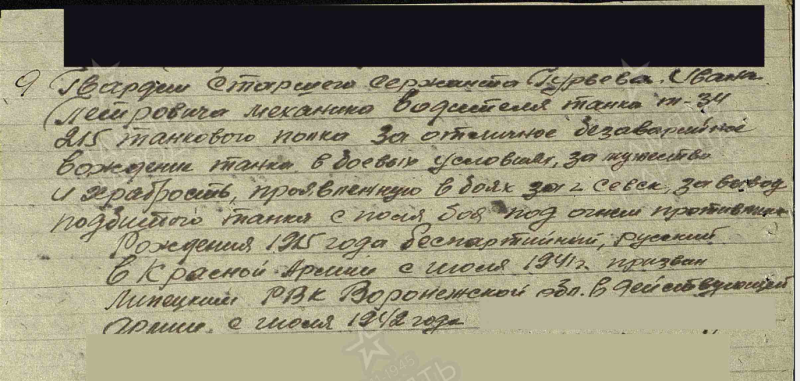 9 Гвардии Старшего Сержанта Гурьева Ивана
Петровича механика водителя танка т-34
215 танкового полка за отличное безаварийное
вождение танка в боевых условиях, за мужество
и храбрость, проявленную в боях за г Севск, за вывод
подбитого танка с поля боя под огнем противника
Рождения 1915 года беспартийный, русский
в Красной Армии с июля 1941г. призван
Липецким РВК Воронежской обл. в действующей
армии с июля 1942 года